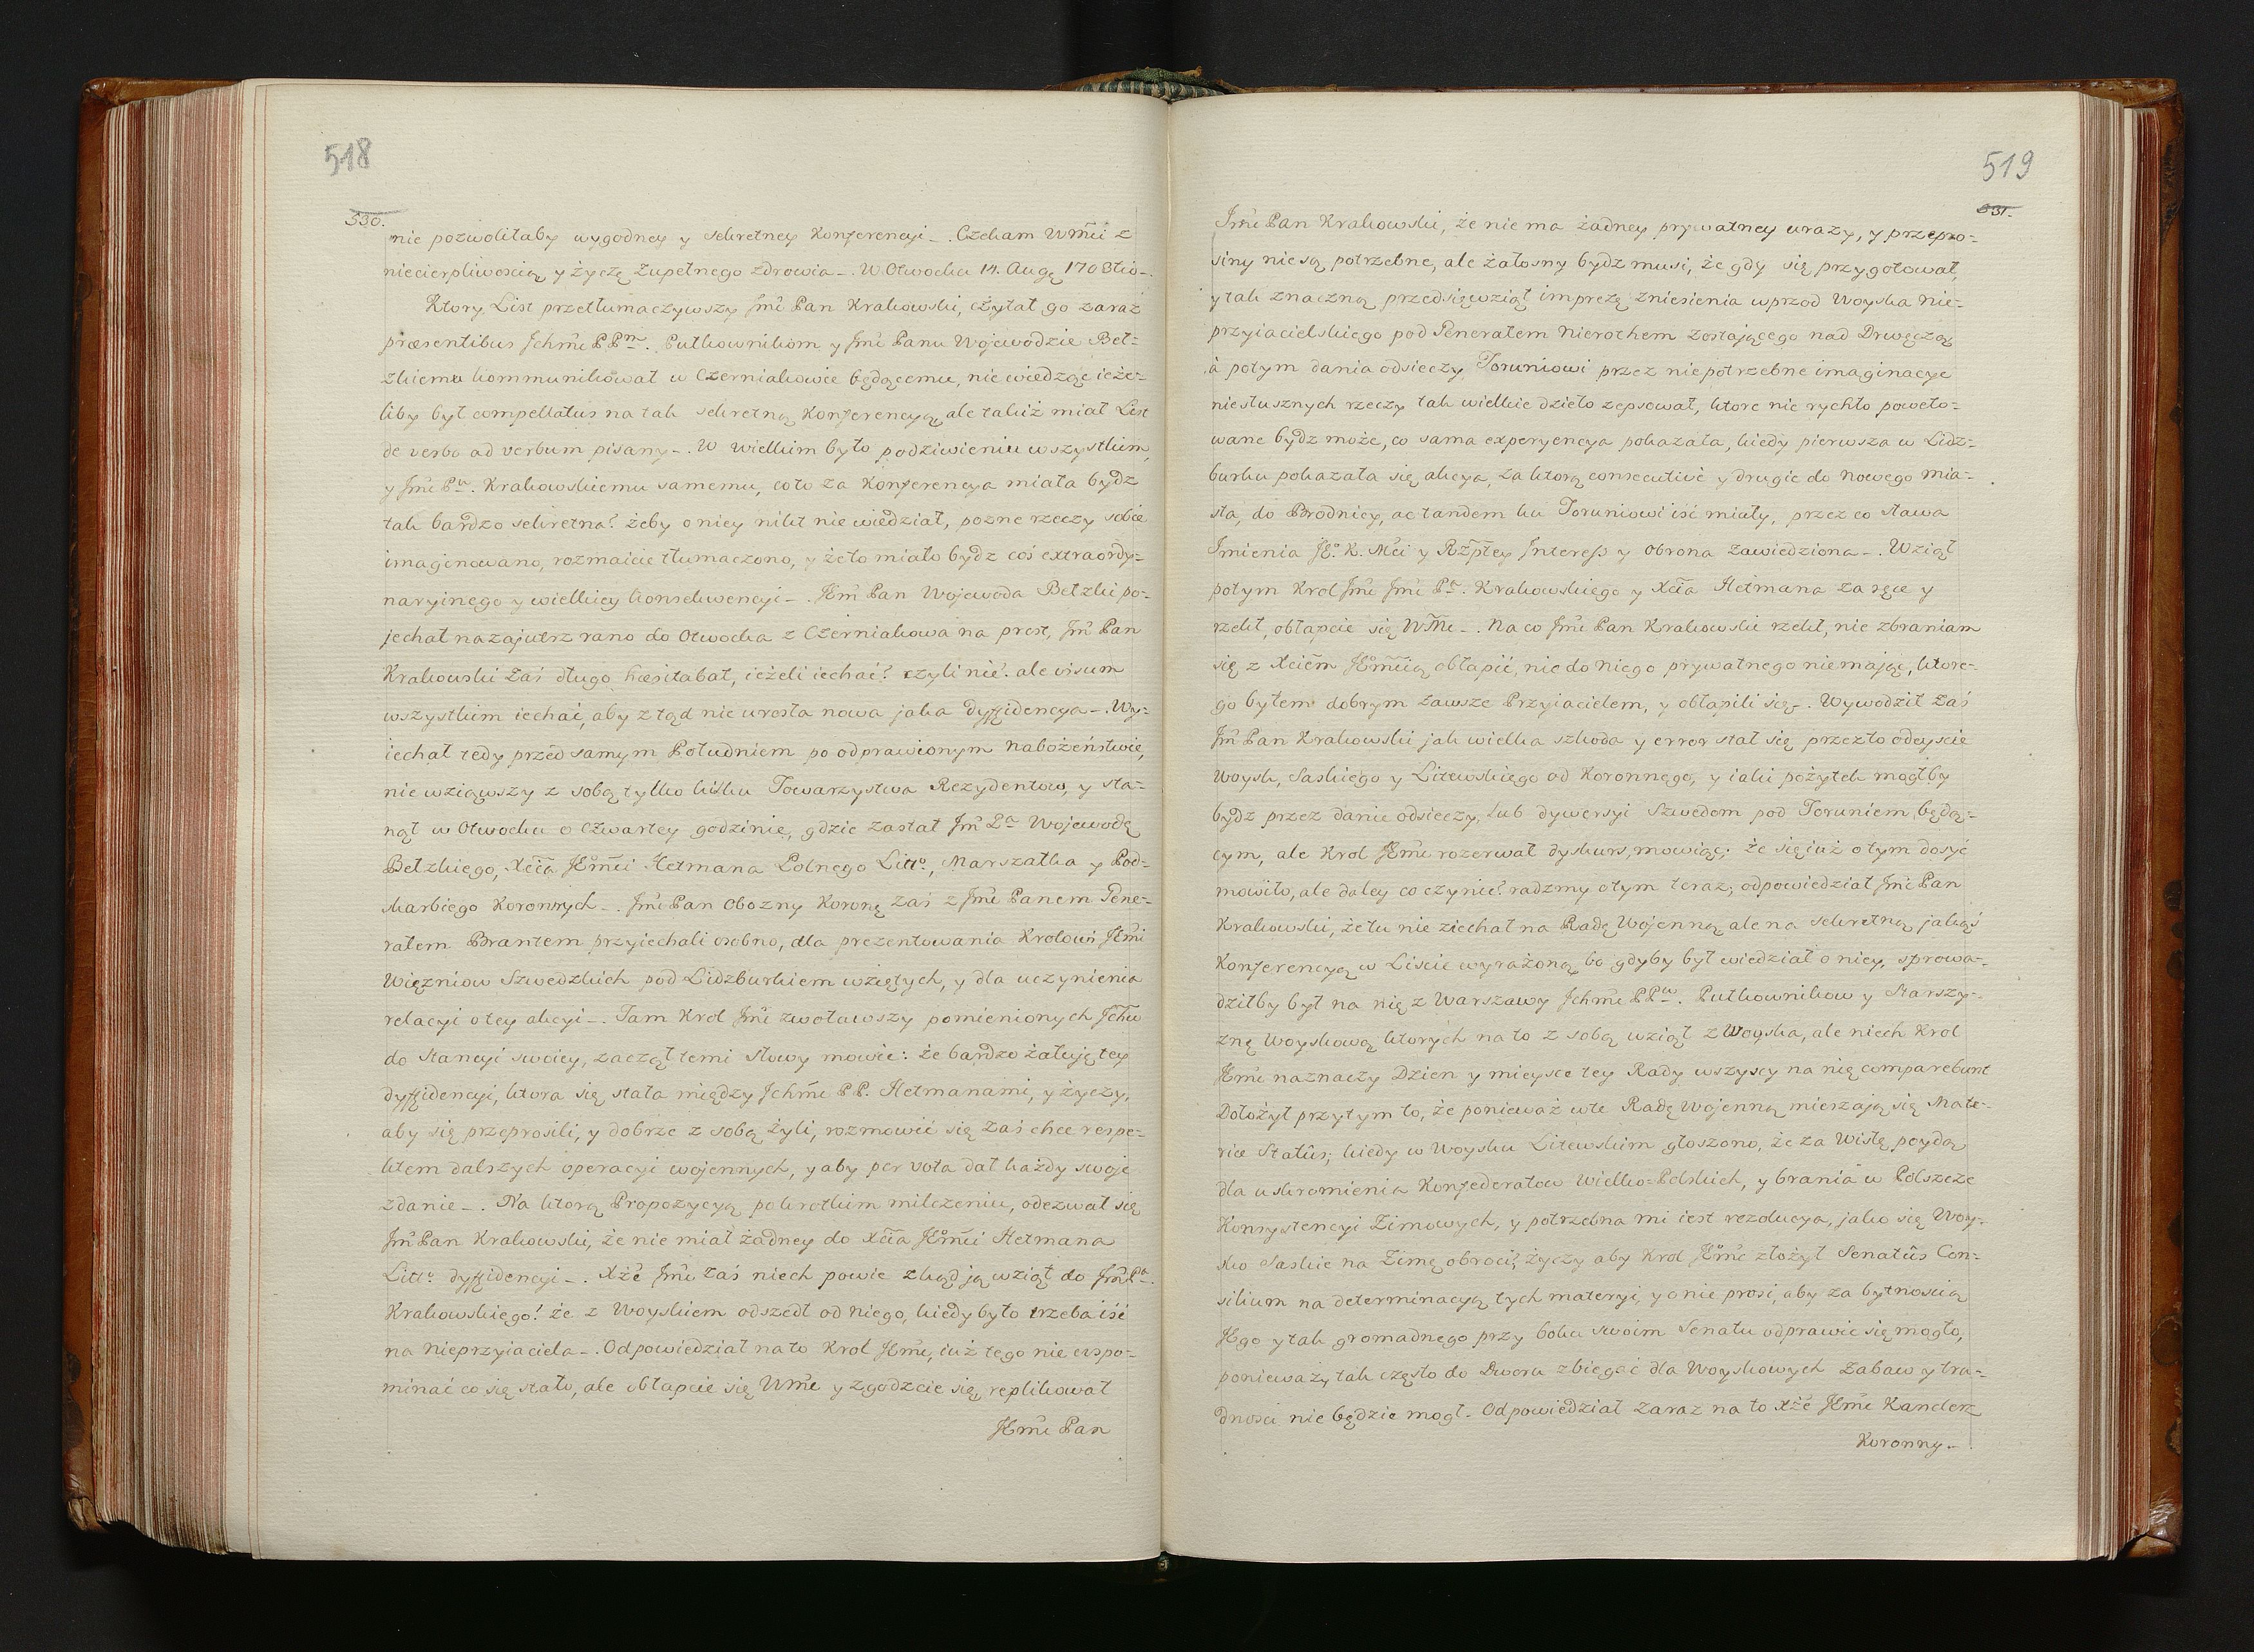 518
530.
nie pozwoliłaby wygodney y sekretney Konferencyi_. Czekam Wm̃ci z
niecierpliwością, y życzę zupełnego zdrowia_. W Otwocku 14. Aug 1703tio_.
Ktory List przetłumaczywszy Jm̃ci Pan Krakowski, czytał go zaraz
præsentibus Jchm̃c PPm. Pułkownikom y Jm̃ci Panu Wojewodzie Beł-
zkiemu kommunikował w Czerniakowie będącemu, nie wiedząc ieże-
liby był compellatus na tak sekretną Konferencyą, ale takiż miał List
de verbo ad verbum pisany_. W wielkim było podziwieniu wszystkim,
y Jm̃ci Pu. Krakowskiemu samemu, co to za Konferencya miała bydz
tak bardzo sekretna? żeby o niey nikt nie wiedział, pozne rzeczy sobie
imaginowano, rozmaicie tłumaczono, y że to miało bydz coś extraordy-
naryinego y wielkiey konsekwencyi_. JEm̃ Pan Wojewoda Bełzki po-
jechał nazajutrz rano do Otwocka z Czerniakowa na prost, Jm̃ Pan
Krakowski zaś długo hæsitabat, ieżeli iechać? czyli nie? ale visum
wszystkim iechać, aby ztąd nie urosła nowa jaka dyffidencya_. Wy-
iechał tedy przed samym Południem po odprawionym nabożeństwie,
nie wziąwszy z sobą tylko kilku Towarzystwa Rezydentow, y sta-
nął w Otwocku o czwartey godzinie, gdzie zastał Jm̃ Pa Wojewodę
Bełzkiego, Xcia JEm̃ci Hetmana Polnego Litto, Marszałka y Pod-
skarbiego Koronnych_. Jm̃ci Pan Obozny Koronę zaś z Jm̃ci Panem Gene-
rałem Brantem przyiechali osobno, dla prezentowania Krolowi JEm̃ci
Więzniow Szwedzkich pod Lidzburkiem wziętych, y dla uczynienia
relacyi o tey akcyi_. Tam Krol Jm̃ci zwoławszy pomienionych Jchm̃
do Stancyi swoiey, zaczął temi słowy mowić: że bardzo żałuję tey
dyffidencyi, ktora się stała między Jchm̃c PP. Hetmanami, y życzy,
aby się przeprosili, y dobrze z sobą żyli, rozmowić się zaś chce respe-
ktem dalszych operacyi wojennych, y aby per vota dał każdy swoje
zdanie_. Na ktorą Propozycyą po krotkim milczeniu, odezwał się
Jm̃ Pan Krakowski, że nie miał żadney do Xcia JEm̃ci Hetmana
Litto dyffidencyi_. Xże Jm̃c zaś niech powie zkąd ją wziął do Jm̃ Pa.
Krakowskiego! że z Woyskiem odszedł od niego, kiedy było trzeba iść
na nieprzyiaciela_. Odpowiedział na to Krol JEm̃c, iuż tego nie wspo-
minać co się stało, ale obłapcie się Wm̃c y zgodzcie się, replikował
JEm̃c Pan
519
531.
Jm̃c Pan Krakowski, że nie ma żadney prywatney urazy, y przepro-
siny nie są potrzebne, ale żałosny bydz musi, że gdy się przygotował,
y tak znaczną przedsięwziął imprezę zniesienia wprzod Woyska nie-
przyiacielskiego pod Generałem Nierothem zostającego nad Drwęczą
à potym dania odsieczy Toruniowi przez niepotrzebne imaginacye
niesłusznych rzeczy tak wielkie dzieło zepsował, ktore nie rychło poweto-
wane bydz może, co sama experyencya pokazała, kiedy pierwsza w Lidz-
burku pokazała się akcya, za ktorą consecutivè y drugie do Nowego Mia-
sta, do Brodnicy, ac tandem ku Toruniowi iść miały, przez co sława
Imienia JEo. K. Mci y Rzptey Interess y Obrona zawiedziona_. Wziął
potym Krol Jm̃c Jm̃c Pa. Krakowskiego y Xcia Hetmana za ręce y
rzekł, obłapcie się WMc_. Na co Jm̃c Pan Krakowski rzekł, nie zbraniam
się z Xciem JEm̃cią obłapić, nic do niego prywatnego niemając, ktore-
go byłem dobrym zawsze Przyiacielem, y obłapili się_. Wywodził zaś
Jm̃ Pan Krakowski jak wielka szkoda y error stał się przez to odeyscie
Woysk, Saskiego y Litewskiego od Koronnego, y iaki pożytek mogłby
bydz przez danie odsieczy, lub dywersyi Szwedom pod Toruniem będą-
cym, ale Krol JEm̃c rozerwał dyskurs, mowiąc; że się iuż o tym dosyć
mowiło, ale daley co czynić? radzmy o tym teraz; odpowiedział Jm̃c Pan
Krakowski, że tu nie ziechał na Radę Wojenną ale na sekretną jakąś
Konferencyą w Liscie wyrażoną, bo gdyby był wiedział o niey, sprowa-
dziłby był na nię z Warszawy Jchm̃c PPw. Pułkownikow y Starszy-
znę Woyskową ktorych na to z sobą wziął z Woyska, ale niech Krol
JEm̃c naznaczy Dzien y mieysce tey Rady wszyscy na nię comparebunt
Dołożył przytym to, że ponieważ w te Radę Wojenną mieszają się Mate-
riæ Statûs; kiedy w Woysku Litewskim głoszono, że za Wisłę poydą
dla uskromienia Konfederatow Wielko-Polskich, y brania w Polszcze
Konsystencyi Zimowych, y potrzebna mi iest rezolucya, jako się Woy-
sko Saskie na Zimę obroci? życzy aby Krol JEm̃c złożył Senatûs Con-
silium na determinacyą tych materyi, y o nie prosi, aby za bytnoscią
JEgo y tak gromadnego przy boku swoim Senatu odprawić się mogło,
ponieważ, tak często do Dworu zbiegać dla Woyskowych zabaw y tru-
dnosci nie będzie mogł_. Odpowiedział zaraz na to Xże JEm̃c Kanclerz
Koronny_.